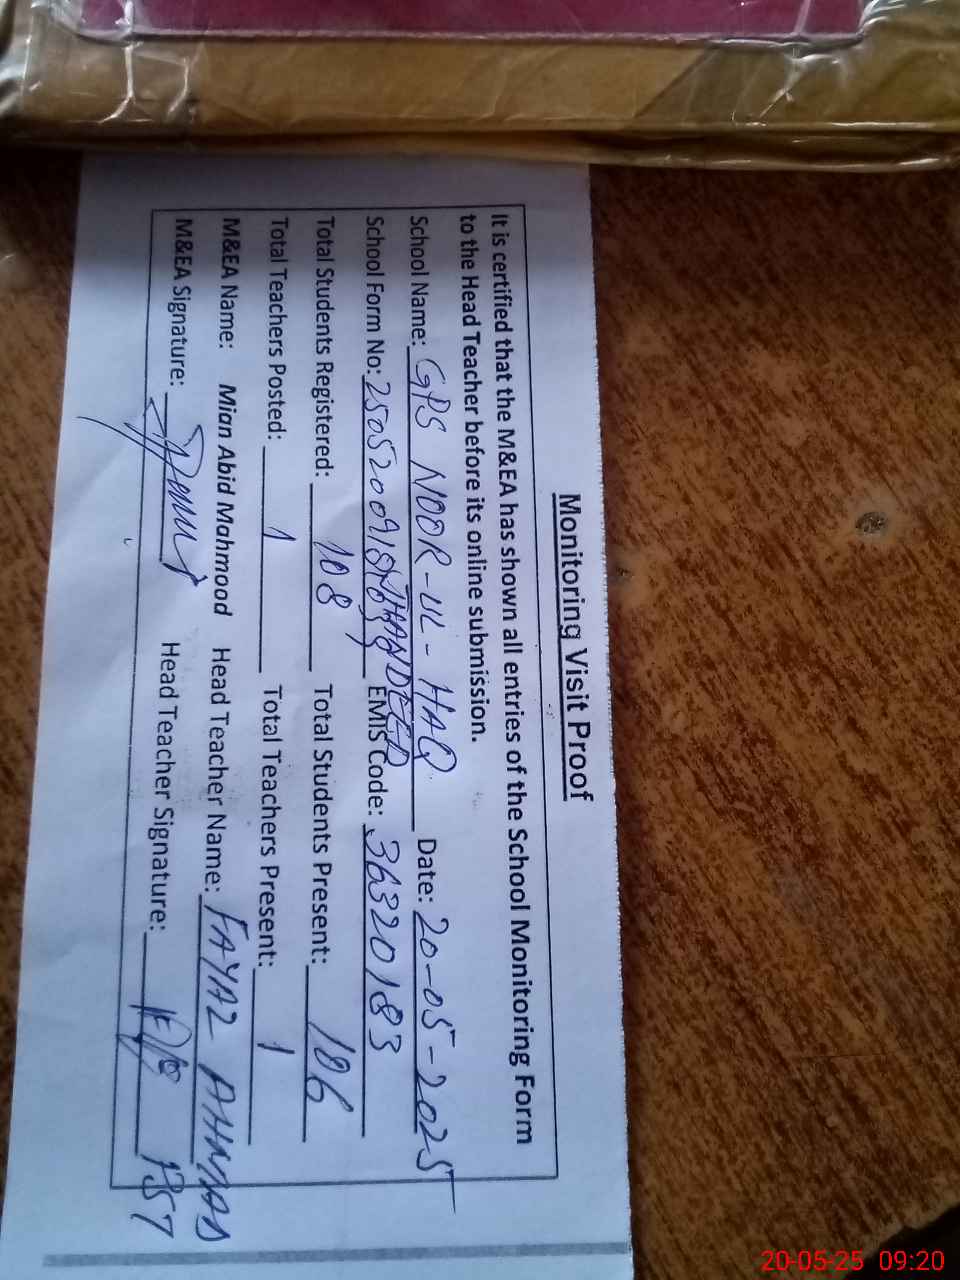 Monitoring Visit Proof
It is certified that the M&EA has shown all entries of the School Monitoring Form
to the Head Teacher before its online submission.
School Name: GPS NOOR-UL-HAQ Date: 20-05-2025
THANDEER
School Form No: EMIS Code: 36320183
Total Students Registered: 108 Total Students Present: 106
Total Teachers Posted: 1 Total Teachers Present: 1
M&EA Name: Mian Abid Mahmood Head Teacher Name: FAYAZ AHMAD
M&EA Signature: Head Teacher Signature: PST
20-05-25 09:20